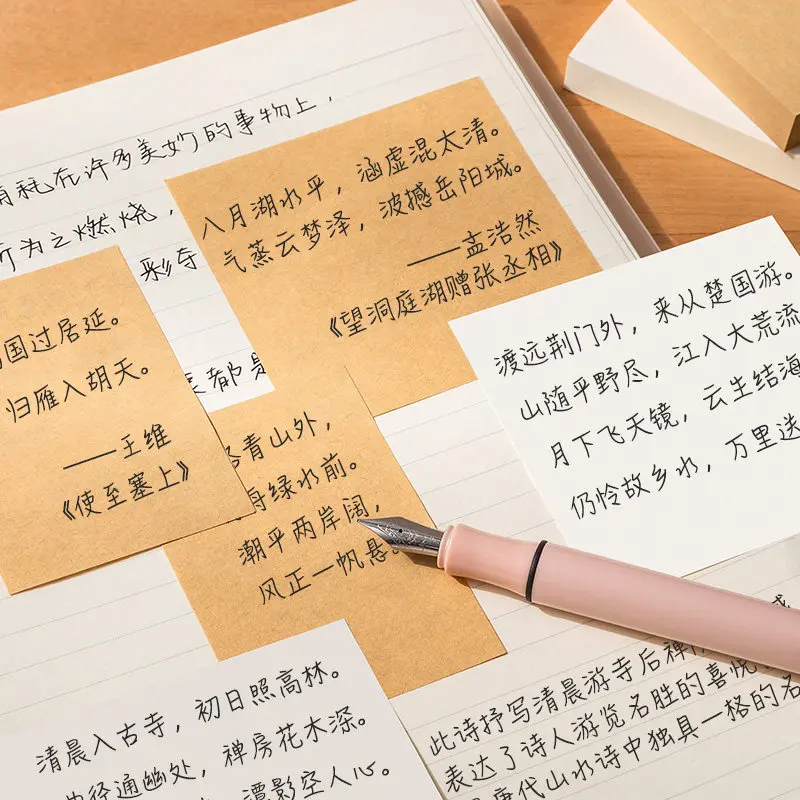 耗在许多美妙的事物上，
为之燃烧，
彩夺
都是
八月湖水平，涵虚混太清。
气蒸云梦泽，波撼岳阳城。
——孟浩然
《望洞庭湖赠张丞相》
国过居延。
归雁入胡天。
——王维
《使至塞上》
青山外，
舟绿水前。
潮平两岸阔，
风正一帆悬。
渡远荆门外，来从楚国游。
山随平野尽，江入大荒流
月下飞天镜，云生结海
仍怜故乡水，万里送
清晨入古寺，初日照高林。
径通幽处，禅房花木深。
潭影空人心。
此诗抒写清晨游寺后禅
表达了诗人游览名胜的喜悦
唐代山水诗中独具一格的名